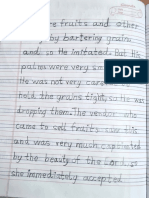 re fruits and other
by bartering grains
and so He imitated, but His
palms were very sm
He was not very care
hold the grains tight, so He was
dropping them, the vendor who
came to sell fruits saw this
and was very much captivated
by the beauty of the Lord. So
she immediately accepted